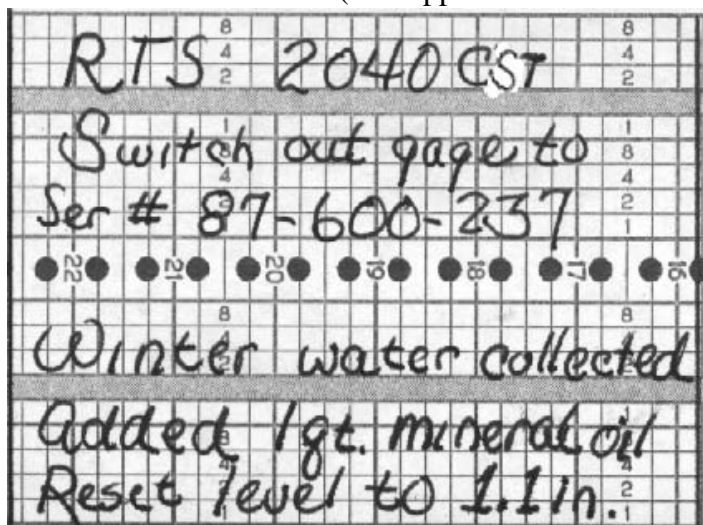 RTS 2040 CST
Switch out gage to
Ser # 87-600-237
22 21 20 19 18 17 16
Winter water collected
Added 1qt. mineral oil
Reset level to 1.1 in.